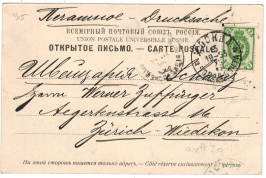 Печатное - Drucksache
ВСЕМІРНЫЙ ПОЧТОВЫЙ СОЮЗЪ. РОССІЯ.
UNION POSTALE UNIVERSELLE. RUSSIE.
ОТКРЫТОЕ ПИСЬМО. — CARTE POSTALE
Швейцарія Schweiz
Herrn Werner Zuppinger
Aegertenstrasse
Zürich - Wiedikon
На этой сторонѣ пишется только адресъ. — Côté réservé exclusivement à l'adresse.